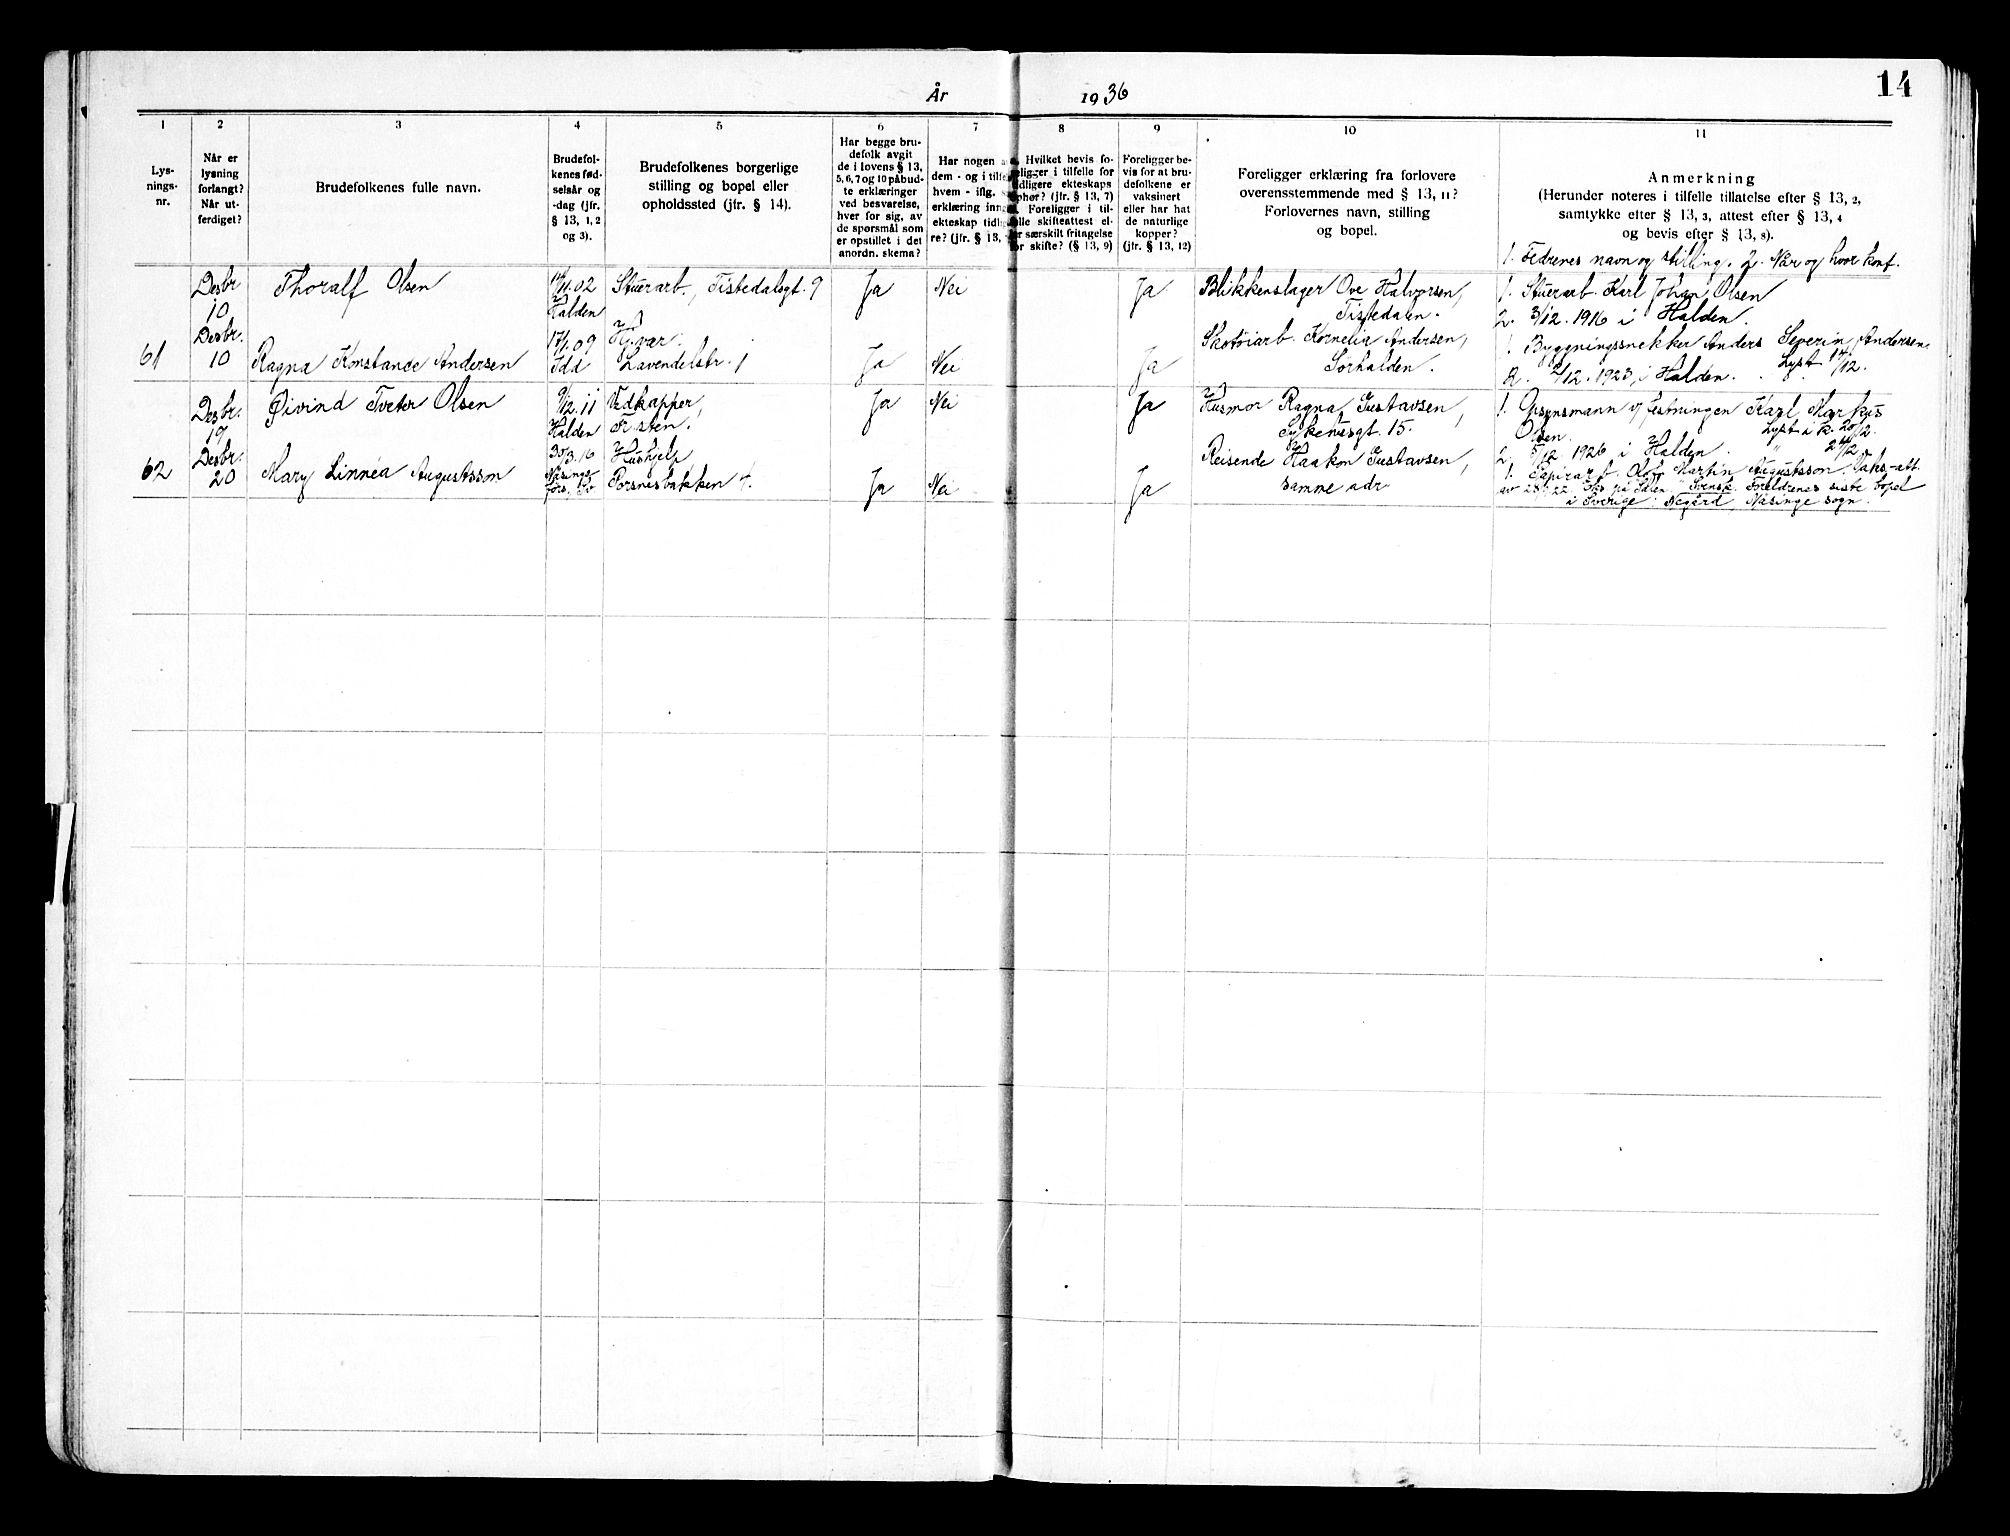 14
År 1936
1 2 3 4 5 6 7 8 9 10 11
Lys-
nings-
nr.
Når er
lysning
forlangt?
Når ut-
ferdiget?
Brudefolkenes fulle navn.
Brudefol-
kenes fød-
selsår og
-dag (jfr.
§ 13, 1, 2
og 3).
Brudefolkenes borgerlige
stilling og bopel eller
opholdssted (jfr. § 14).
Har begge bru-
defolk avgit
de i lovens § 13,
5, 6, 7 og 10 påbud-
te erklæringer
ved besvarelse,
hver for sig, av
de spørsmål som
er opstillet i det
anordn. skema?
Har nogen
dem - og i tilf
hvem - iflg.
erklæring inng
ekteskap tidlig
re? (jfr. § 13,
Hvilket bevis fo-
religger i tilfelle for
tidligere ekteskaps
ophør? (jfr. § 13, 7)
Foreligger i til-
felle skifteattest el-
ler særskilt fritagelse
for skifte? (§ 13, 9)
Foreligger be-
vis for at bru-
defolkene er
vaksinert
eller har hat
de naturlige
kopper?
(jfr. § 13, 12)
Foreligger erklæring fra forlovere
overensstemmende med § 13, 11?
Forlovernes navn, stilling
og bopel.
Anmerkning
(Herunder noteres i tilfelle tillatelse efter § 13, 2,
samtykke efter § 13, 3, attest efter § 13, 4
og bevis efter § 13, 8).
1. Fedrenes navn og stilling. 2. Når og hvor konf.
Desbr
10
Thoralf Olsen
11/11.02
Halden
Stuerarb., Tistedalsgt. 9
Ja Nei Ja
Blikkenslager Ove Halvorsen,
Tistedalen.
1. Stuerarb. Karl Johan Olsen
2. 3/12.1916 i Halden.
61
Desbr.
10
Ragna Konstance Andersen
17/1.09
Idd
Hj.vær.
Lavendelstr. 1
Ja Nei Ja
Skotøiarb. Kornelia Andersen,
Sørhalden.
1. Bygningssnekker Anders Severin Andersen
2. 2/12.1923, i Halden. Lyst 14/12.
Desbr.
19
Øivind Tveter Olsen
9/12.11
Halden
Vedkapper,
Fristen.
Ja Nei Ja
Husmor Ragna Gustavsen,
Sykehusgt. 15.
1. Opsynsmann v/ festningen Karl Markus
Olsen. Lyst i k. 20/12.
2. 5/12 1926 i Halden.
62
Desbr.
20
Mary Linnéa Augustsson
30/3.16
Hushjelp
Porsnesbakken 4.
Ja Nei Ja
Reisende Haakon Gustavsen,
samme adr.
1. Papirarb. Olof Martin Augustsson. Vaks-att.
Svensk. Foreldrenes siste bopel
i Sverige: Negård, Näsinge sogn.